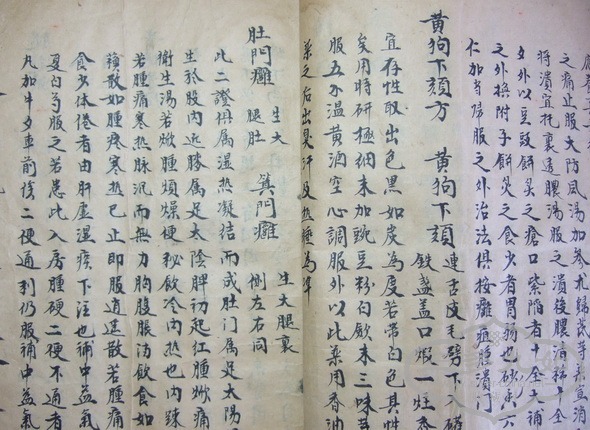 之痛止服大防風湯加參朮歸芪等藥宜消
將潰宜托裏透膿湯服之潰後膿清稀十全
夕外以豆豉餅炙之瘡口紫陷者十全大補
之外換附子餅炙之食少者胃弱也砂
仁加服之外治法俱按癰疽腫潰門
黃狗下頦方 黃狗下頦 連舌皮毛劈下入
鐵盞盖口煅一炷香
宜存性取出色黑如炭為度若帶白色其性
矣用時研極細末加豌豆粉白歛末三味等
服五錢溫黃酒空心調服外以此藥用香油
藥之后出臭汗及熱睡為準
肚門癰 生大腿肚 箕門癰 生大腿裏側左右同
此二證俱属湿热凝结而成肚门属足太陽
生於股內近膝属足太陰脾初起红腫焮痛
衛生湯若焮腫煩燥便秘飲冷內热也內踈
若腫痛寒热脉沉而無力胸腹脹满飲食如
毒散如腫疼寒热已止即服逍遥散若腫痛
食少体倦者由肝虛湿痰下注也補中益氣
夏白芍服之若患此入房腫硬二便不通者
凡加牛夕車前後二便通利仍服補中益氣